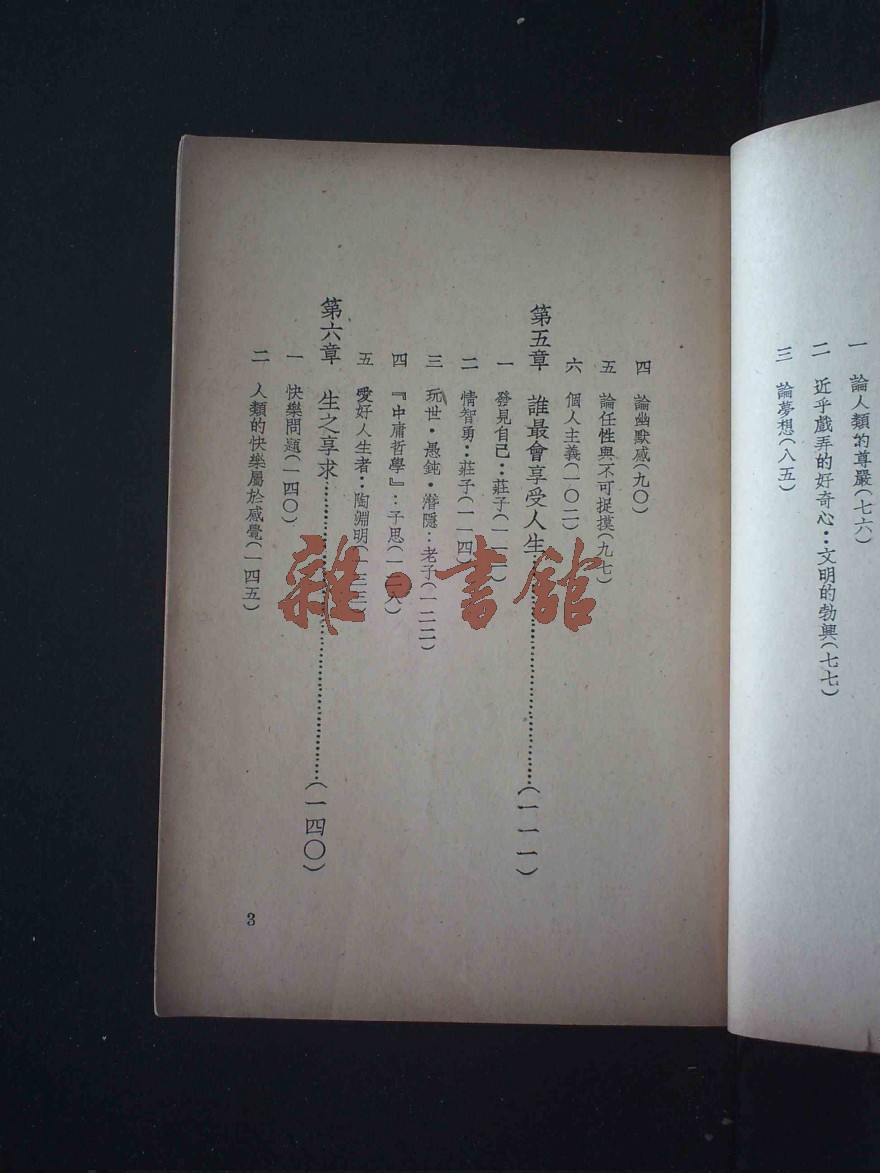 一 論人類的尊嚴(七六)
二 近乎戲弄的好奇心：文明的勃興(七七)
三 論夢想(八五)
四 論幽默感(九〇)
五 論任性與不可捉摸(九七)
六 個人主義(一〇二)
第五章 誰最會享受人生…………(一一一)
一 發見自己：莊子(一一一)
二 情智勇：莊子(一一四)
三 玩世・愚鈍・潛隱：老子(一二二)
四 『中庸哲學』：子思(一二八)
五 愛好人生者：陶淵明(一三三)
第六章 生之享求…………(一四〇)
一 快樂問題(一四〇)
二 人類的快樂屬於感覺(一四五)
3
雜・書館